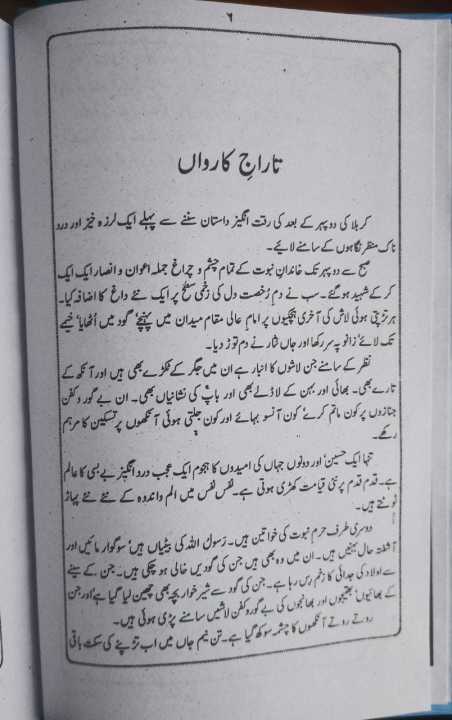 ۶
تاراجِ کارواں
کربلا کی دوپہر کے بعد کی رقت انگیز داستان سننے سے پہلے ایک لرزہ خیز اور درد
ناک منظر نگاہوں کے سامنے لائیے۔
صبح سے دوپہر تک خاندانِ نبوت کے تمام چشم و چراغ جملہ اعوان و انصار ایک ایک
کر کے شہید ہوگئے۔ سب نے دمِ رُخصت دل کی زخمی سطح پر ایک نئے داغ کا اضافہ کیا۔
ہر تڑپتی ہوئی لاش کی آخری ہچکیوں پر امامِ عالی مقام میدان میں پہنچے' گود میں اُٹھایا' خیمے
تک لائے' زانو پہ سر رکھا اور جاں نثار نے دم توڑ دیا۔
نظر کے سامنے جن لاشوں کا انبار ہے ان میں جگر کے ٹکڑے بھی ہیں اور آنکھ کے
تارے بھی۔ بھائی اور بہن کے لاڈلے بھی اور باپ کی نشانیاں بھی۔ ان بے گور و کفن
جنازوں پر کون ماتم کرے' کون آنسو بہائے اور کون جلتی ہوئی آنکھوں پر تسکین کا مرہم
رکھے۔
تنہا ایک حسین' اور دونوں جہاں کی امیدوں کا ہجوم ایک عجب درد انگیز بے بسی کا عالم
ہے۔ قدم قدم پر نئی قیامت کھڑی ہوتی ہے۔ نفس نفس میں الم و اندوہ کے نئے نئے پہاڑ
ٹوٹتے ہیں۔
دوسری طرف حرمِ نبوت کی خواتین ہیں۔ رسولُ اللہ کی بیٹیاں ہیں' سوگوار مائیں اور
آشفتہ حال بہنیں ہیں۔ ان میں وہ بھی ہیں جن کی گودیں خالی ہو چکی ہیں۔ جن کے سینے
سے اولاد کی جدائی کا زخم رِس رہا ہے۔ جن کی گود سے شیر خوار بچہ بھی چھین لیا گیا ہے' اور جن
کے بھائیوں' بھتیجوں اور بھانجوں کی بے گور و کفن لاشیں سامنے پڑی ہوئی ہیں۔
روتے روتے آنکھوں کا چشمہ سوکھ گیا ہے۔ تنِ نیم جاں میں اب تڑپنے کی سکت باقی